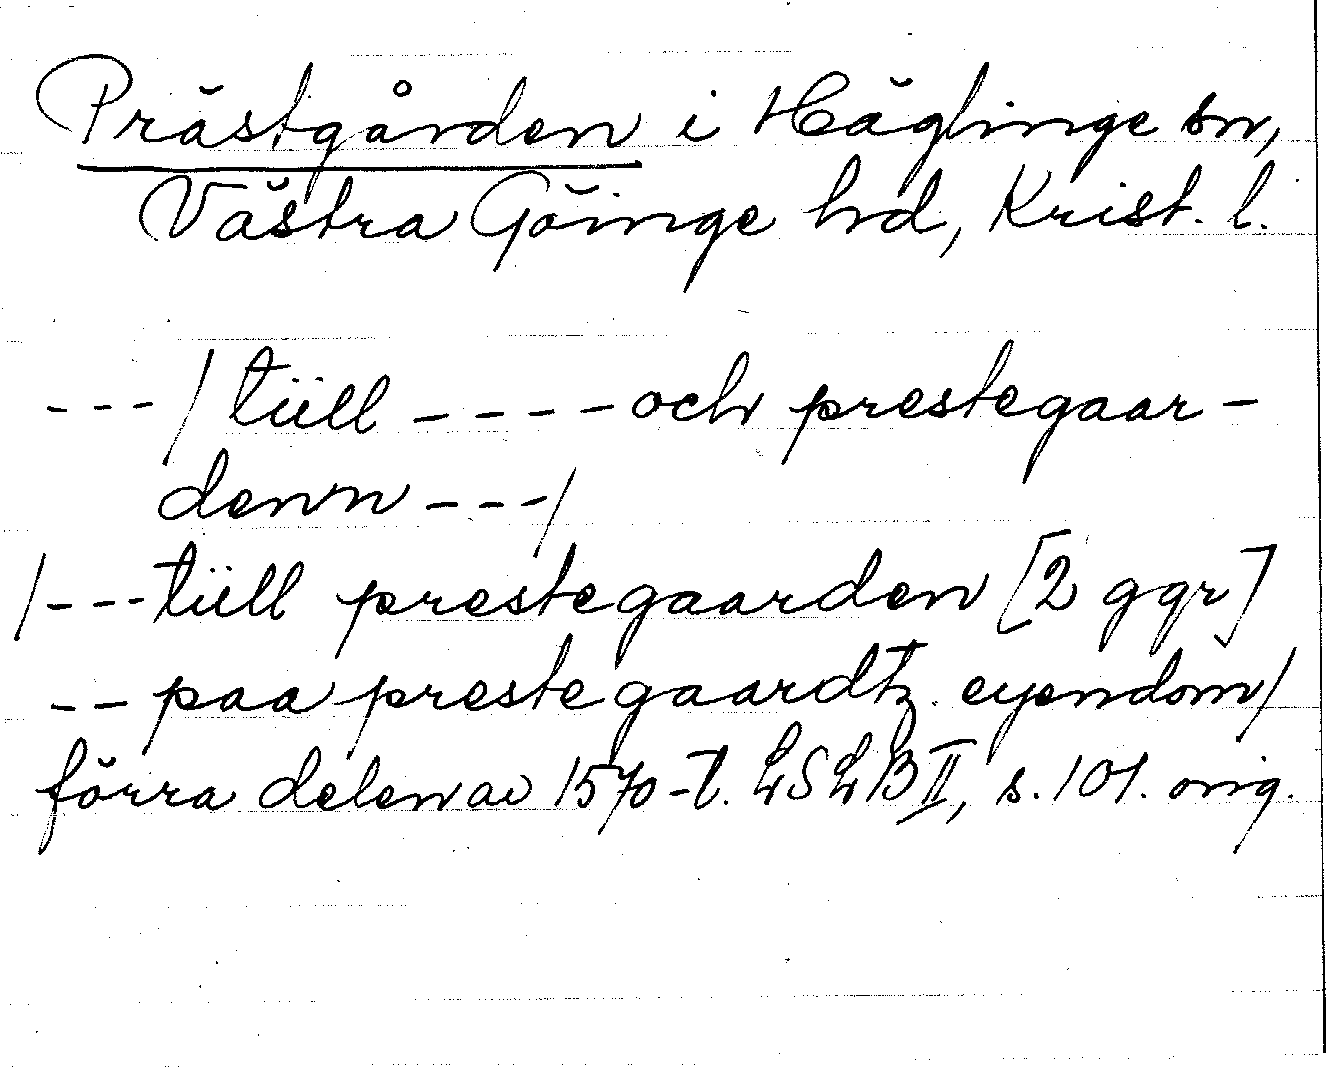 Prästgården i Häglinge sn,
Västra Göinge hd, Krist. l.
---/ tüll ---- och prestegaar-
denn ---/
/---tüll prestegaarden [2 ggr]
-- paa prestegaardtz eyendom/
förra delen av 1570-t. LSLB II, s. 101. orig.